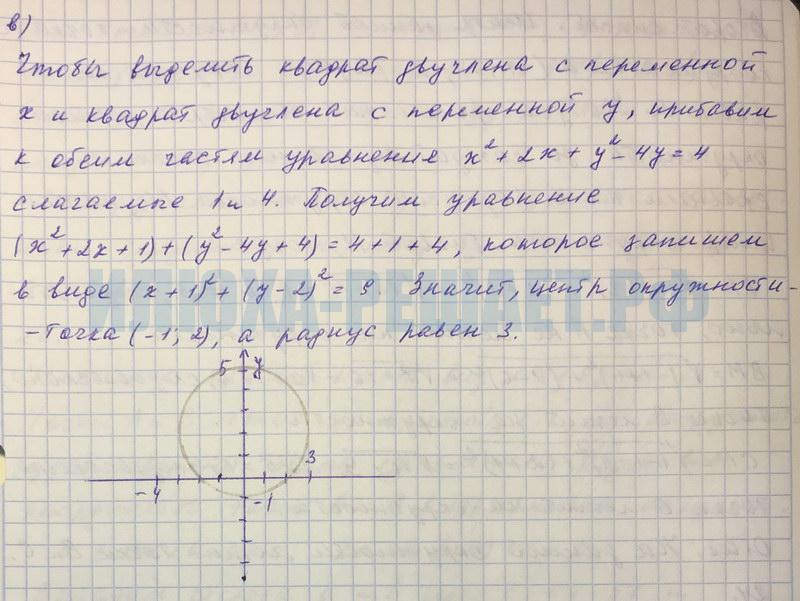 в)
Чтобы выделить квадрат двучлена с переменной
x и квадрат двучлена с переменной y, прибавим
к обеим частям уравнения x² + 2x + y² - 4y = 4
слагаемые 1 и 4. Получим уравнение
(x² + 2x + 1) + (y² - 4y + 4) = 4 + 1 + 4, которое запишем
в виде (x + 1)² + (y - 2)² = 9. Значит, центр окружности -
- точка (-1; 2), а радиус равен 3.
ИЛЮХА-РЕШАЕТ.РФ
5 y
3
-4
-1